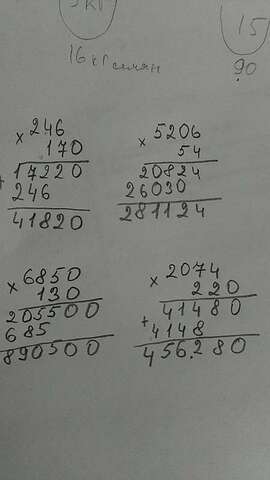 5кг
15
16 кг семян
90
× 246
170
17220
+ 246
41820
× 5206
54
20824
26030
281124
× 6850
130
205500
685
890500
× 2074
220
41480
+ 4148
456.280